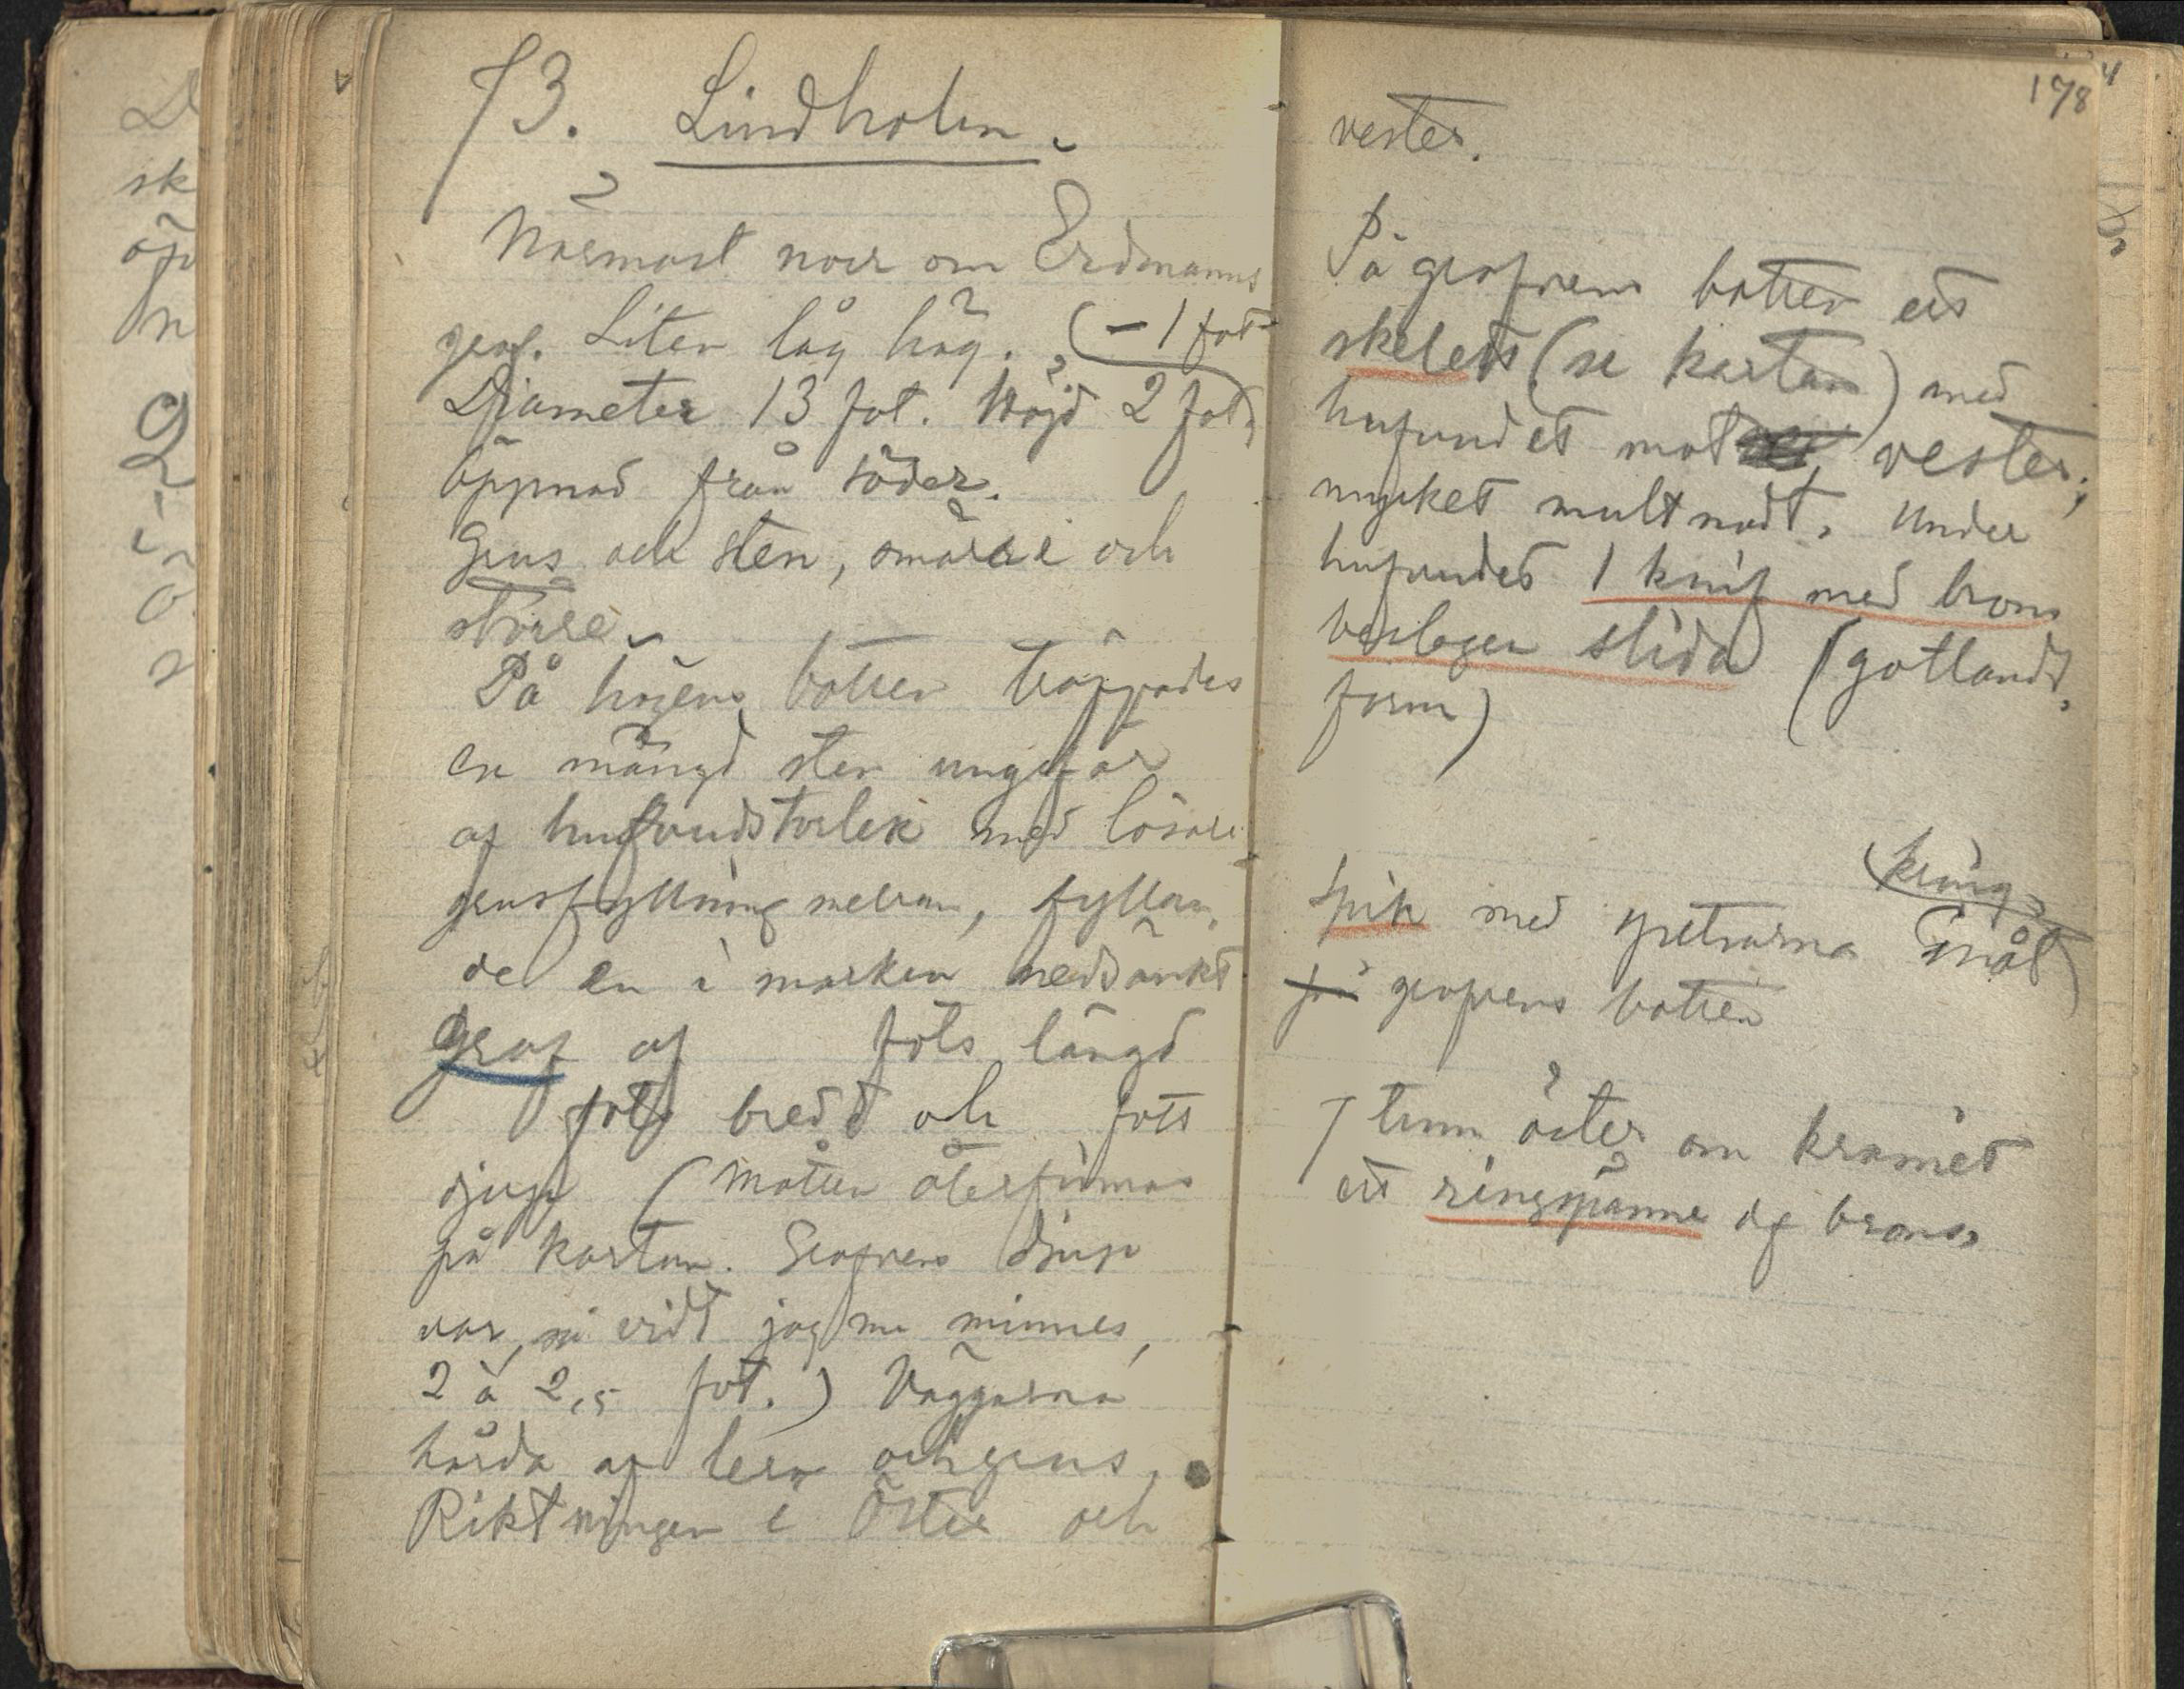 73. Lindholm.
Närmast norr om Erdmanns
graf. Liten låg hög. (-1 fot
Diameter 13 fot. Höjd 2 fot,
öppnad från söder.
Grus och sten, smärre och
större.
På högens botten träffades
en mängd sten ungefär
af hufvudstorlek med lösare
grusfyllning mellan, fyllan,
de en i marken nedsänkt
graf af fots längd
fots bredd och fots
djup (måtten återfinnas
på kartan. Grafvens djup
var, så vidt jag nu minnes,
2 à 2,5 fot.) Väggarna
hårda af lera och grus.
Riktningen i Öster och
178
vester.
På grafvens botten ett
skelett (se kartan) med
hufvudet mot vester;
mycket multnadt. Under
hufvudet 1 knif med brons
beslagen slida (gotlandsk
form)
(kring
Spik med spetsarna inåt)
på grafvens botten
1 tum öster om kraniet
ett ringspänne af brons.
D
sk
öp
n